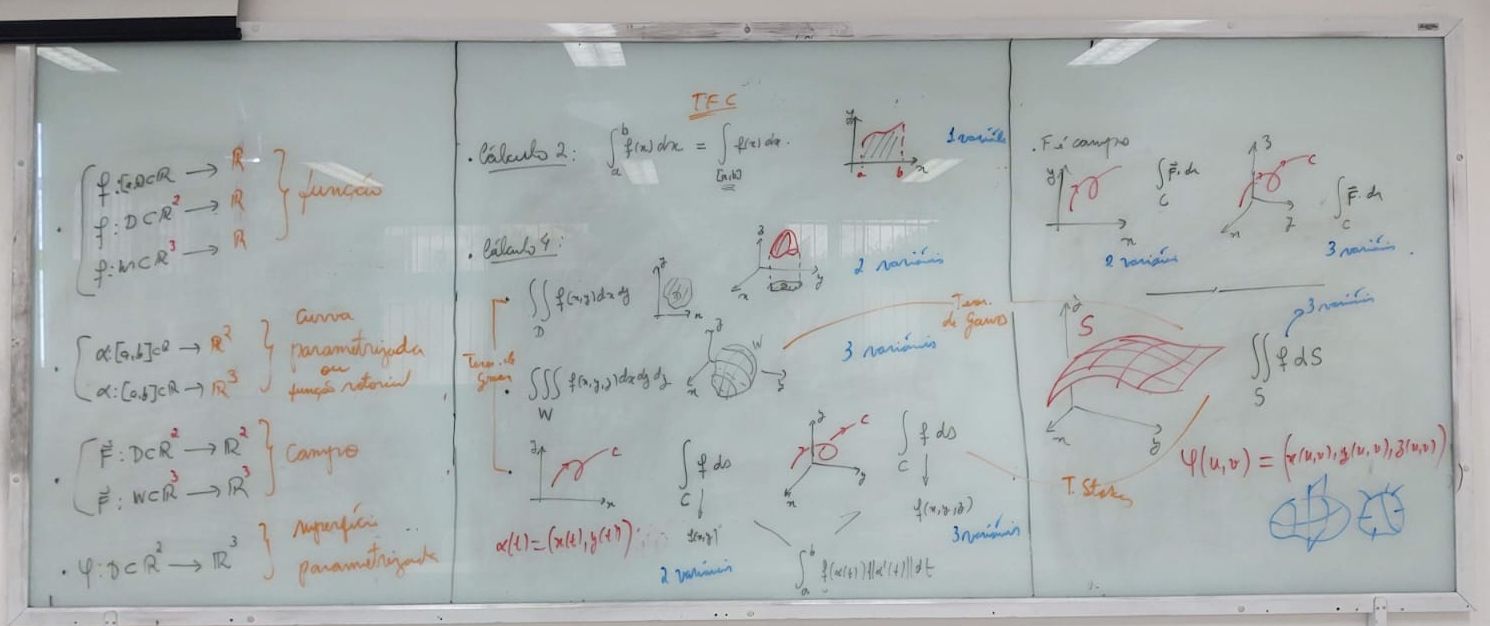 f:[a,b]⊂ℝ → ℝ
f: D⊂ℝ² → ℝ
f: W⊂ℝ³ → ℝ
função
α:[a,b]⊂ℝ → ℝ²
α:[a,b]⊂ℝ → ℝ³
Curva
parametrizada
ou
função vetorial
F⃗: D⊂ℝ² → ℝ²
F⃗: W⊂ℝ³ → ℝ³
Campo
φ: D⊂ℝ² → ℝ³
superfície
parametrizada
TFC
• Cálculo 2: ∫_a^b f(x) dx = ∫_[a,b] f(x) dx.
y
a b x
1 variável
• Cálculo 4:
∬_D f(x,y) dx dy
x
z
x y
2 variáveis
Teor. de
Green
∭_W f(x,y,z) dx dy dz
z W
x y
3 variáveis
Teor.
de Gauss
C
x
α(t) = (x(t), y(t))
∫_C f ds
f(x,y)
2 variáveis
C
x y
∫_C f ds
f(x,y,z)
3 variáveis
∫_a^b f(α(t)) ||α'(t)|| dt
• F é campo
y
x
∫_C F⃗. dr
2 variáveis
z C
x y
∫_C F⃗. dr
3 variáveis
z S
x y
3 variáveis
∬_S f dS
T. Stokes
φ(u,v) = (x(u,v), y(u,v), z(u,v))